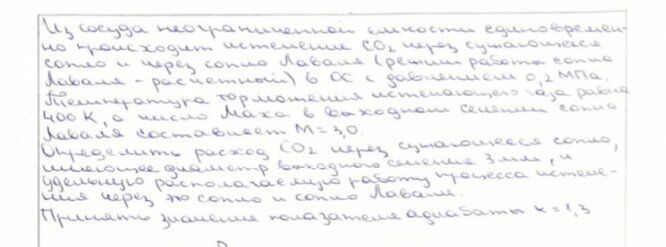 Из сосуда неограниченной емкости единовремен-
но происходит истечение CO₂ через сужающееся
сопло и через сопло Лаваля (режим работы сопла
Лаваля - расчетный) в ОС с давлением 0,2 МПа.
Температура торможения истекающего газа равна
400 К, а число Маха в выходном сечении сопла
Лаваля составляет М = 3,0.
Определить расход CO₂ через сужающееся сопло,
имеющее диаметр выходного сечения 3 мм, и
удельную располагаемую работу процесса истече-
ния через это сопло и сопло Лаваля.
Принять значение показателя адиабаты k = 1,3